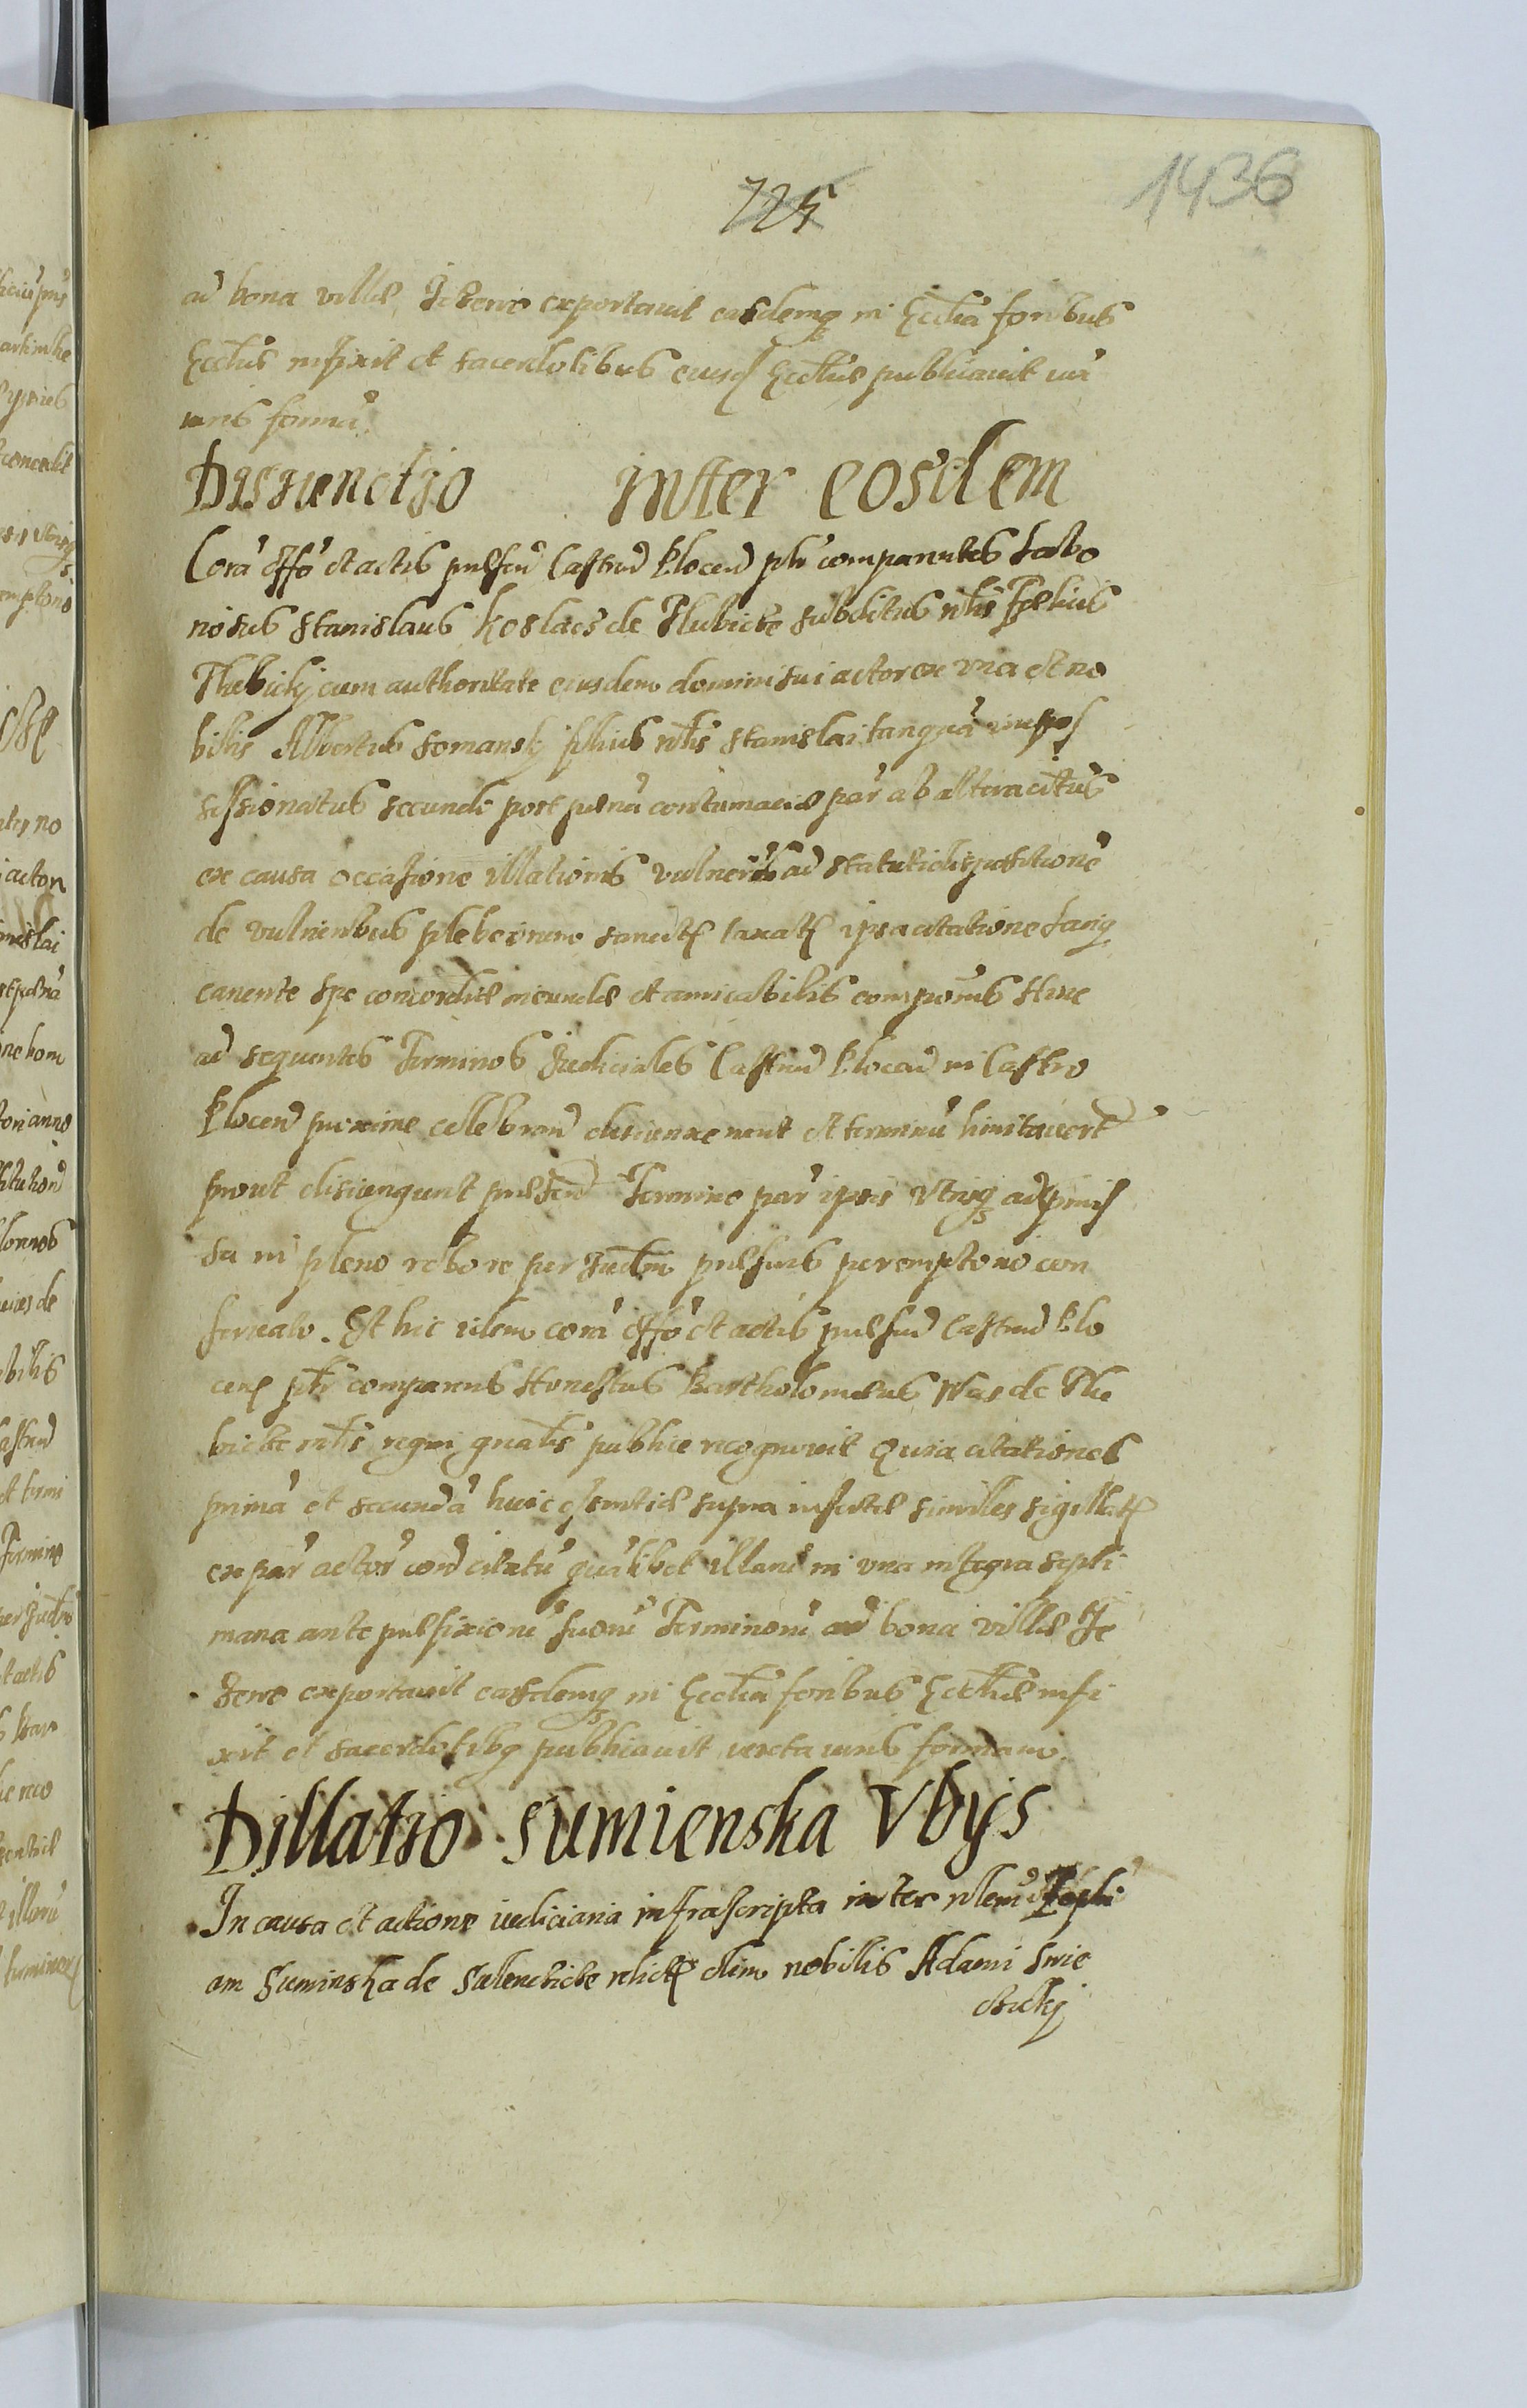 725
1436
ad bona villæ Jezewo exportavit easdemq in Eccliã foribus
Eccliæ infixit et sacerdotibus eiusd Eccliæ publicavit iux
iuris formã
Disiunctio inter eosdem
Corã offo et actis pñsbus Castren Plocen pñr comparentes Labo
riosus Stanislaus Koslacz de Thlubicze subditus nblis
Thlubiczky cum authoritate eiusdem domini sui actor ex una et no
bilis Albertus Somansky filius nblis Stanislai tanquã impos
sessionatus secundi post pænã contumaciæ par ab altera citatus
ex causa occasione illationis vulnerũ ad statuti dispositionẽ
de vulneribus plebeiorum taxat ipsa citatione lariq
canente spe concordiæ ineundæ et amicabilis compõnis Hinc
ad sequentes Terminos Judiciales Castren Plocen in Castro
Plocen proxime celebran disiunxerunt et terminũ limitavert
prout disiungunt præsen Termino par ipsis utrisq adpmis
sa in pleno robore per Judm præfixis peremptorio con
servato. Et hic idem corã offo et actis præsen Castren Plo
cen pñr comparens Honestus Bartholomæus Was de Thlu
bicze mlis regni gnalis publice recognovit Quia citationes
primã et secundã huic sentiæ supra insertæ similes sigillat
ex par actor con citatũ quãlibet illarũ in una integra septi
mana ante præfixionẽ suorũ Terminorũ ad bona villæ Je
zewo exportavit easdemq in Eccliã foribus Eccliæ infi
xit et sacerdotibq publicavit iuxta iuris formam
Dillatio Sumienska Vbys
In causa et actione iudiciaria infrascripta inter
am Suminska de relict olim nobilis Adami Swie